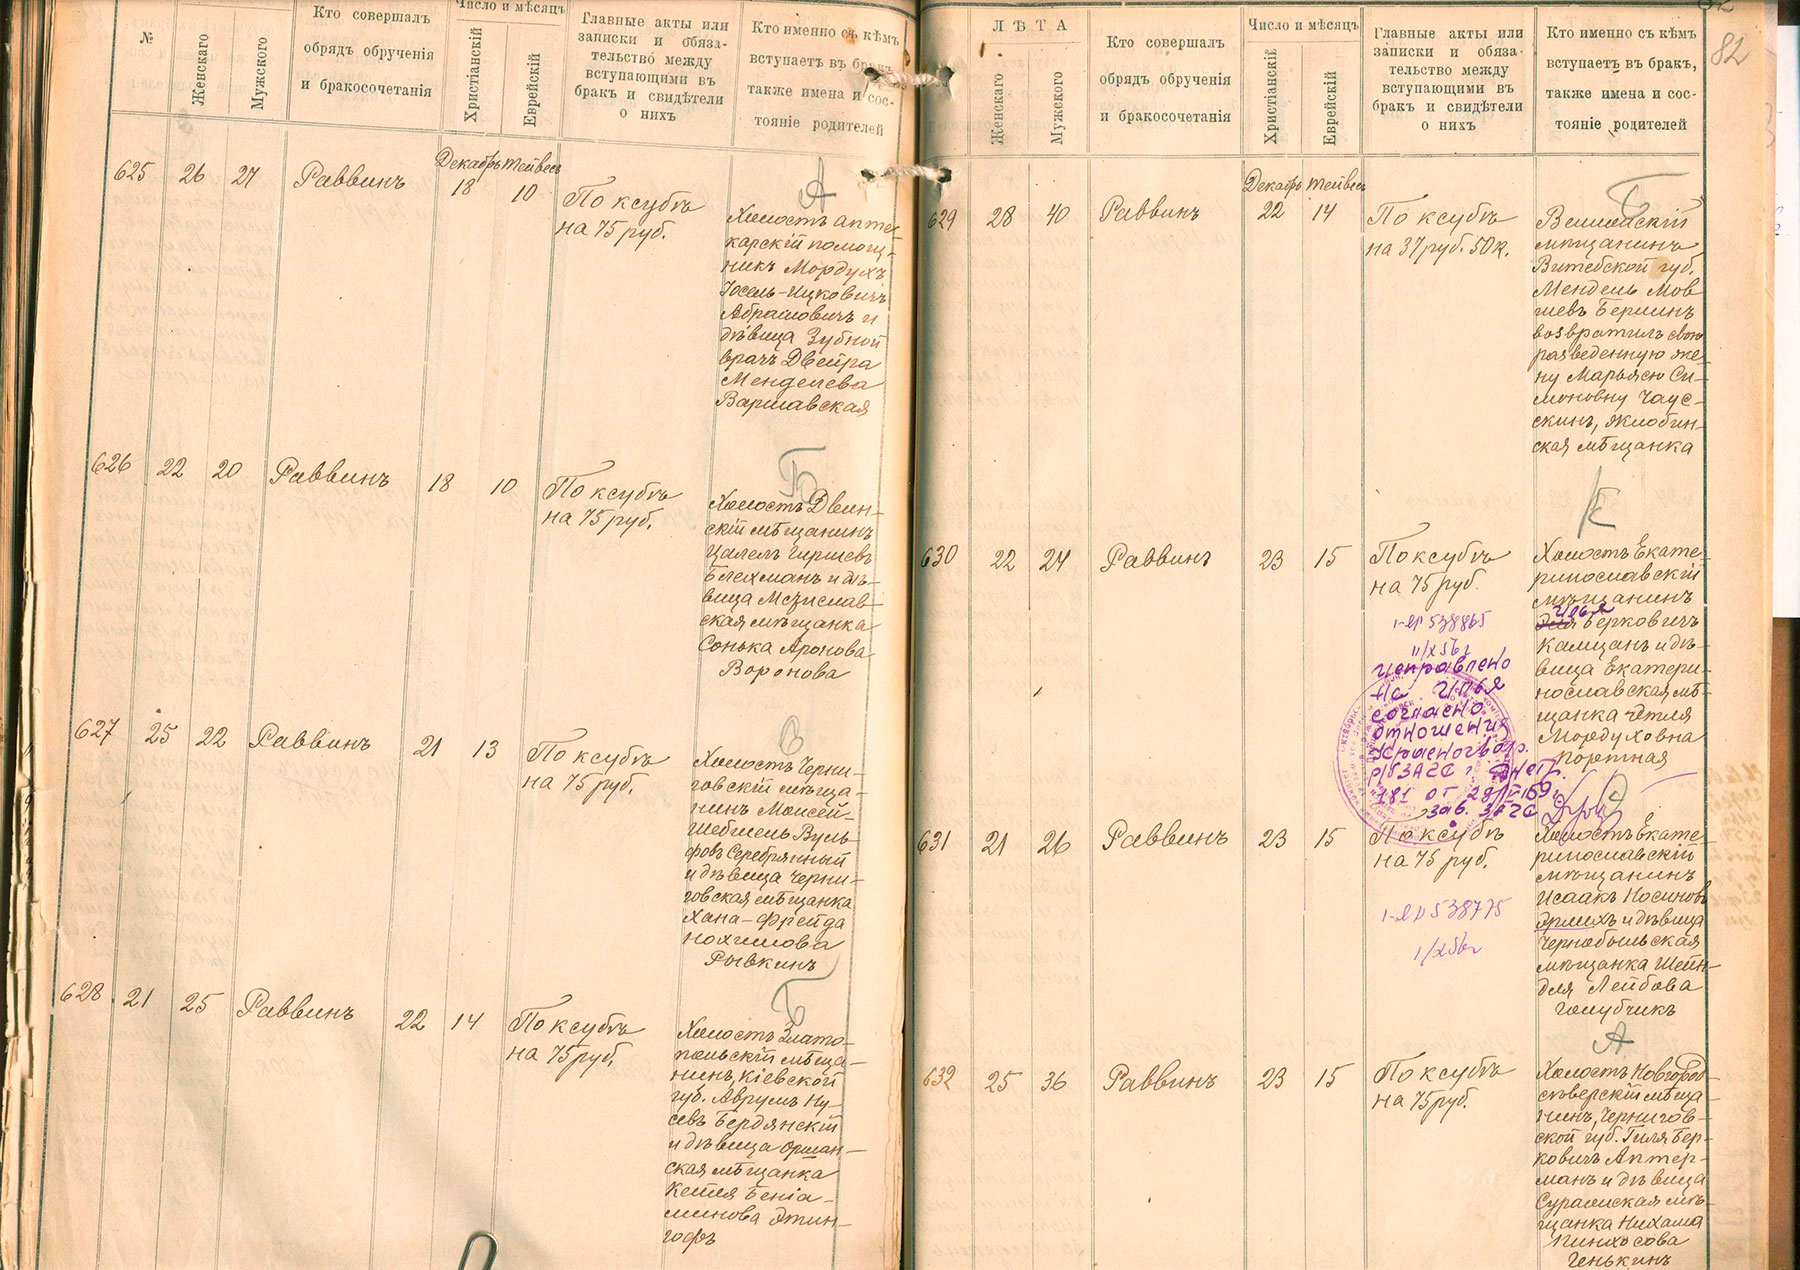 №
Женскаго
Мужского
Кто совершалъ
обрядъ обрученія
и бракосочетанія
Число и мѣсяцъ
Христіанскій
Еврейскій
Главные акты или
записки и обяза-
тельство между
вступающими въ
бракъ и свидѣтели
о нихъ
Кто именно съ кѣмъ
вступаетъ въ бракъ,
также имена и сос-
тояніе родителей
625 26 27 Раввинъ
Декабрь Тейвесъ
18 10
По ксубѣ
на 75 руб.
А
Холостъ апте-
карскій помощ-
никъ Мордухъ
Іосель-Ицковичъ
Абрамовичъ и
дѣвица Зубной
врачъ Двейра
Менделева
Варшавская
626 22 20 Раввинъ 18 10
По ксубѣ
на 75 руб.
Б
Холостъ Двин-
скій мѣщанинъ
Цалелъ Гиршевъ
Блехманъ и дѣ-
вица Мстислав-
ская мѣщанка
Сонька Аронова
Воронова
627 25 22 Раввинъ 21 13
По ксубѣ
на 75 руб.
С
Холостъ Черни-
говскій мѣща-
нинъ Моисей-
Шебшель Вуль-
фовъ Серебрянный
и дѣвица Черни-
говская мѣщанка
Хана-Фрейда
Нохимова
Рывкинъ
628 21 25 Раввинъ 22 14
По ксубѣ
на 75 руб.
Б
Холостъ Злато-
польскій мѣща-
нинъ, Кіевской
губ. Аврумъ Ну-
севъ Бердянскій
и дѣвица Орман-
ская мѣщанка
Кейля Беніа-
минова Этин-
гофъ
82
ЛѢТА
Женскаго
Мужского
Кто совершалъ
обрядъ обрученія
и бракосочетанія
Число и мѣсяцъ
Христіанскій
Еврейскій
Главные акты или
записки и обяза-
тельство между
вступающими въ
бракъ и свидѣтели
о нихъ
Кто именно съ кѣмъ
вступаетъ въ бракъ,
также имена и сос-
тояніе родителей
629 28 40 Раввинъ
Декабрь Тейвесъ
22 14
По ксубѣ
на 37 руб. 50 к.
Б
Велижскій
мѣщанинъ
Витебской губ.
Мендель Мов-
шевъ Берлинъ
возвратилъ свою
разведенную же-
ну Марьясю Си-
моновну Чаус-
скинъ, Жлобин-
ская мѣщанка
630 22 24 Раввинъ 23 15
По ксубѣ
на 75 руб.
К
Холостъ Екате-
ринославскій
мѣщанинъ
Илья
Берковичъ
Камцанъ и дѣ-
вица Екатери-
нославская мѣ-
щанка Этля
Мордуховна
Портная
538865
11/X 56г
исправлено
на Илья
согласно
отношения
Красногвар.
р/бЗАГС г. Днепр.
181 от
зав. ЗАГС
631 21 26 Раввинъ 23 15
По ксубѣ
на 75 руб.
Холостъ Екате-
ринославскій
мѣщанинъ
Исаакъ Носиновъ
Эрлихъ и дѣвица
Чернобыльская
мѣщанка Шейн-
для Лейбова
Голубчикъ
538775
1/X 56г
632 25 36 Раввинъ 23 15
По ксубѣ
на 75 руб.
А
Холостъ Новгород-
сѣверскій мѣща-
нинъ, Чернигов-
ской губ. Гиля Бер-
ковичъ Аптер-
манъ и дѣвица
Суражская мѣ-
щанка Нихама
Пинхосова
Генькинъ